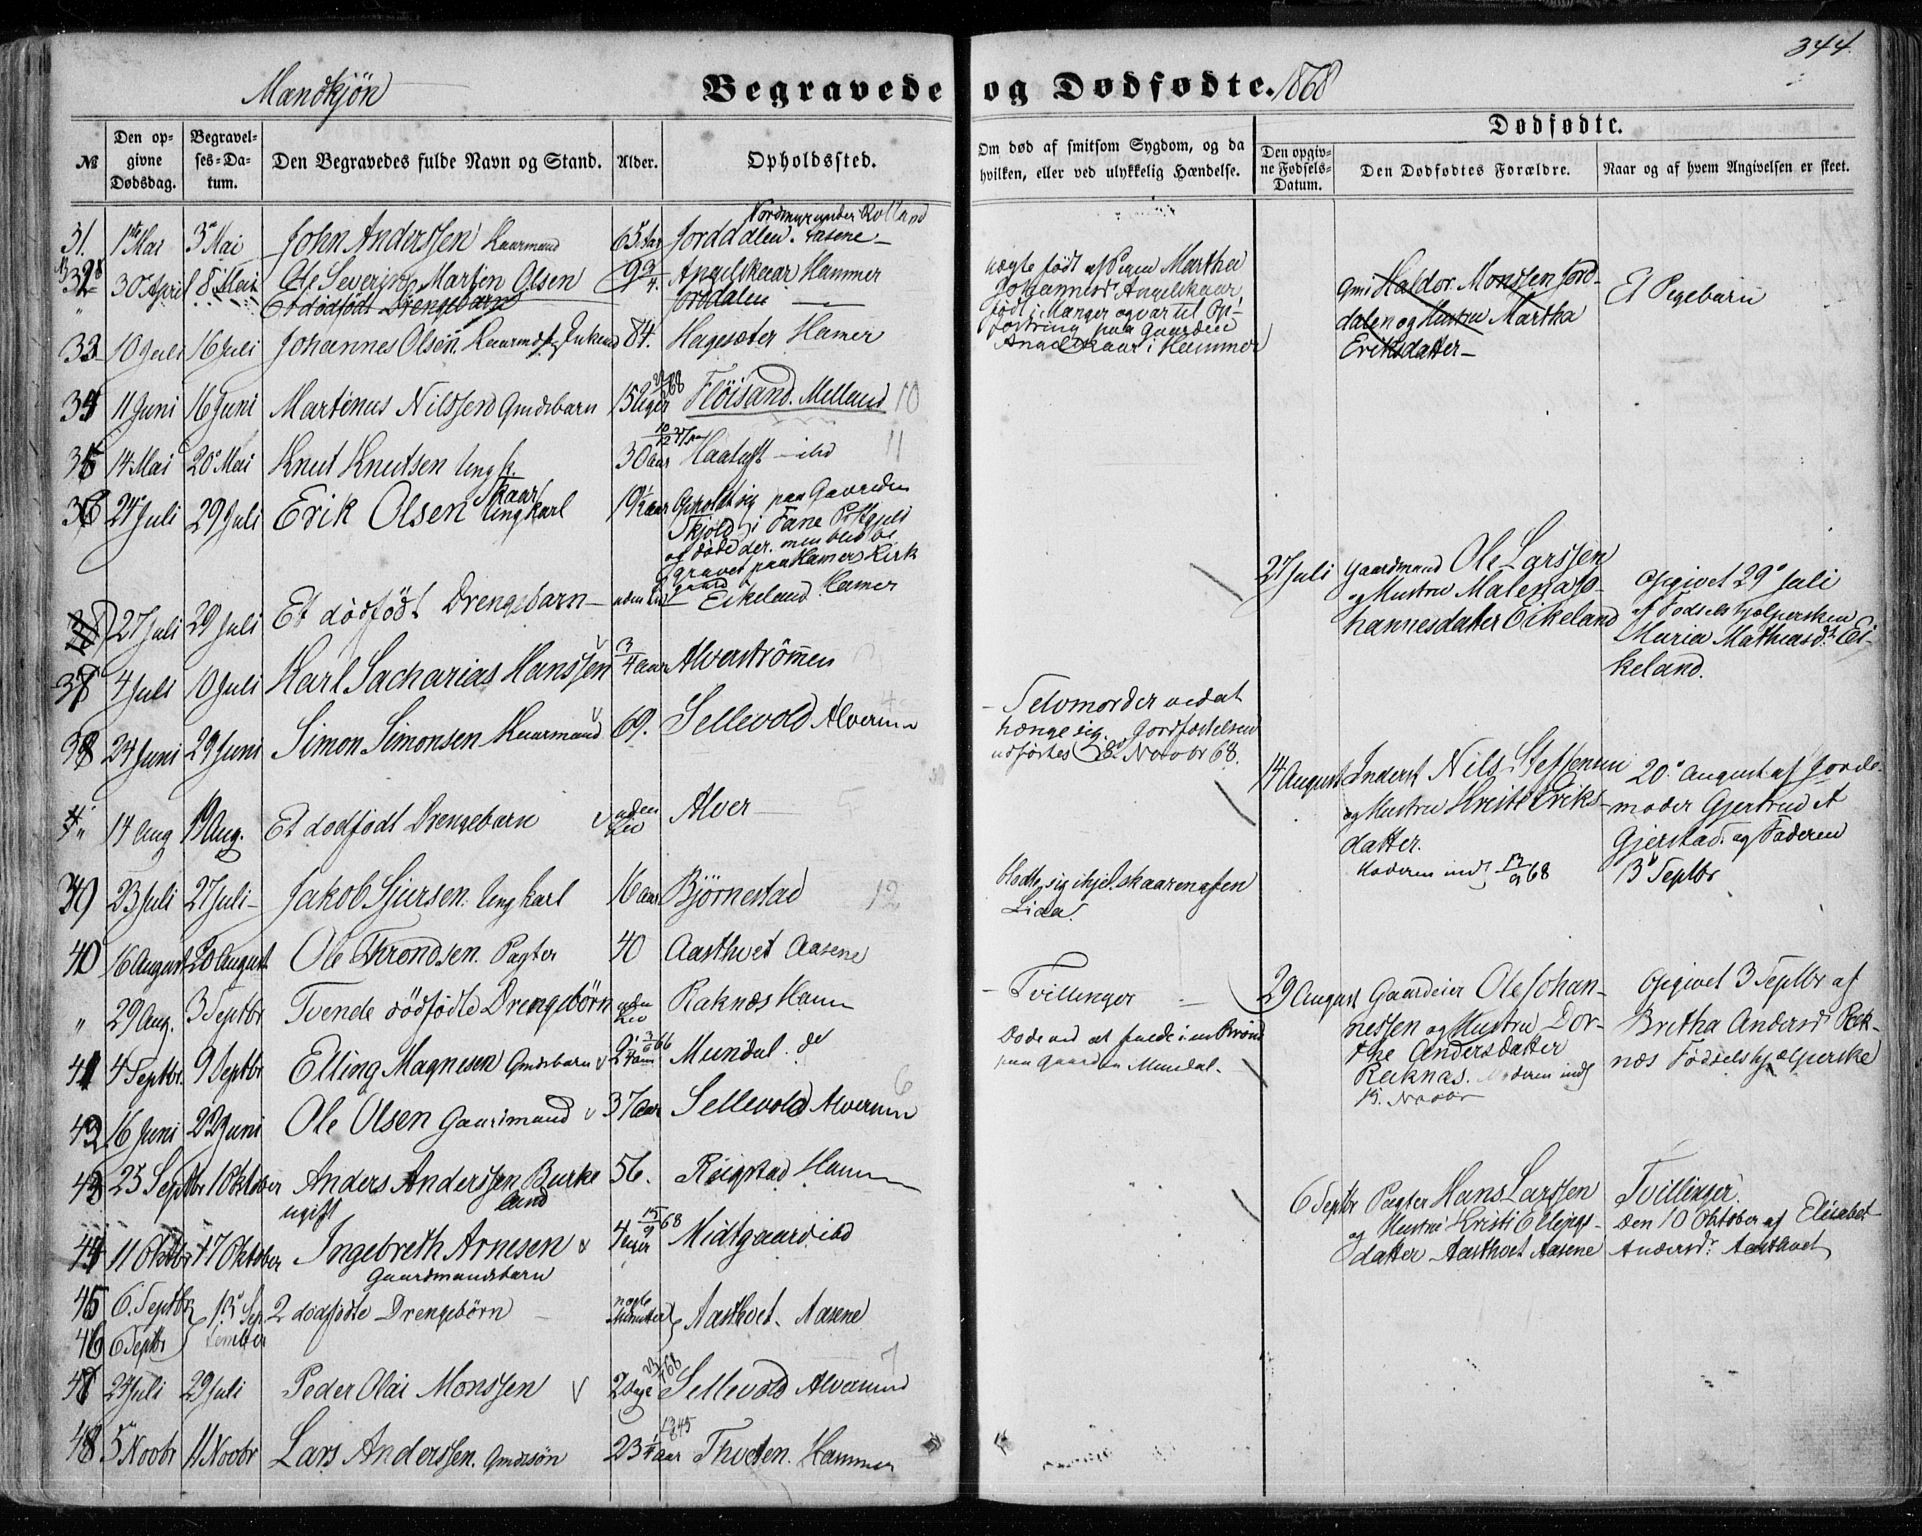 344.
Mandkjön
Begravede og Dødfødte. 1868
Dødfødte.
№
Den op-
givne
Dødsdag.
Begravel-
ses-Da-
tum.
Den Begravedes fulde Navn og Stand.
Alder.
Opholdssted.
Om død af smitsom Sygdom, og da
hvilken, eller ved ulykkelig Hændelse.
Den opgiv-
ne Fødsels-
Datum.
Den Dødfødtes Forældre.
Naar og af hvem Angivelsen er skeet.
31. 1ste Mai 3 Mai John Anderssen Kaarmand 65 Aar Jorddalen. Aasene
32 30 April 8 Mai Ole Severin Marten Olsen 9 3/4 Angelskaar Hammer
Et dödfödt Drengebarn Jordalen
uægte født af Pigen Martha
Johannesd. Angelskaar,
født i Manger og var til Op-
fostring paa Gaarden
Angelskaar i Hammer
Haldor Monssen Jord-
dalen og Hustru Martha
Eriksdatter
Et Pegebarn
33 10 Juli 16 Juli Johannes Olsen. Kaarmand 84. Hagesæter Hamer
34 11 Juni 16 Juni Martinus Nilssen Gmdsbarn 15 Uger Flöisand. Melland 10
35 14 Mai 20 Mai Knut Knutsen Ungk. 30 aar Haatuft ibd 11
36 24 Juli 29 Juli Erik Olsen Skaar Ungkarl 19½ aar Opholdt sig paa Gaarden
Skjold i Fane Pstgjeld
og døde der. men blev be
gravet paa Hamers Kirk
gaard
27 Juli 29 Juli Et dödfödt Drengebarn uden Liv Eikeland Hamer
27 Juli Gaardmand Ole Larssen
og Hustru Malena Jo-
hannesdatter Eikeland
Opgivet 29 Juli
af Fødselshjælpersken
Maria Mathiasd. Ei-
keland.
37 4 Juli 10 Juli Karl Sacharias Hanssen 3/4 aar Alverströmen
38 24 Juni 29 Juni Simon Simonsen Kaarmand 69. Sellevold Alversun
Selvmorder ved at
hænge sig. Jordfæstelsen
udførtes 8 Novbr 68.
14 Aug 19 Aug. Et dodfödt Drengebarn uden Liv Alver
14 August Inderst Nils Steffensen
og Hustru Kreste Eriks-
datter.
Moderen ind. 13/9 68
20 August af Jorde-
moder Gjertrud A
Gjerstad. og Faderen
13 Septbr
39 23 Juli 27 Juli Jakob Sjursen. Ungkarl 16 aar Björnestad 12
40 16 August 20 August Ole Throndsen. Pagter 40 Aasthvet Aasene
29 Aug. 3 Septbr Tvende dödfödte Drengebörn uden Liv Raknæs Ham
Tvillinger
29 August Gaardeier Ole Johan-
nessen og Hustru Dor-
the Andersdatter
Raknæs. Moderen inds
15. Novbr
Opgivet 3 Septbr af
Bretha Andersd. Rek-
næs Fødselshjælperske
41 4 Septbr. 9 Septbr Elling Magnesen Gmdsbarn Mundal. do
Døde ved at falde i en Brönd
paa Gaarden Mundal.
42 16 Juni 22 Juni Ole Olsen Gaardmand 37 aar Sellevold Alversun 6
43 25 Septbr 1 Oktober Anders Anderssen Burke 56. Reigstad Ham
ugift land
44 11 Oktbr 17 Oktober Ingebreth Arnesen 4 Uger 15/9 68 Midtgaard ibd
Gaardmandsbarn
45 6. Septbr 13 Sep 2 dodfødte Drengebörn nogle Minutter Aasthvet. Aasene
46 6 Septbr tember
6 Septbr Pagter Hans Larssen
og Hustru Kristi Ellings-
datter Aasthvet Aasene
Tvillinger.
Den 10 Oktober af Elisabet
Andersdr. Aasthvet
47 24 Juli 29 Juli Peder Olai Monssen 2 Dage Sellevold Alversund 7
48 5 Novbr 11 Novbr Lars Anderssen. Gmdssön 23 aar 1845 Thveten. Hammer